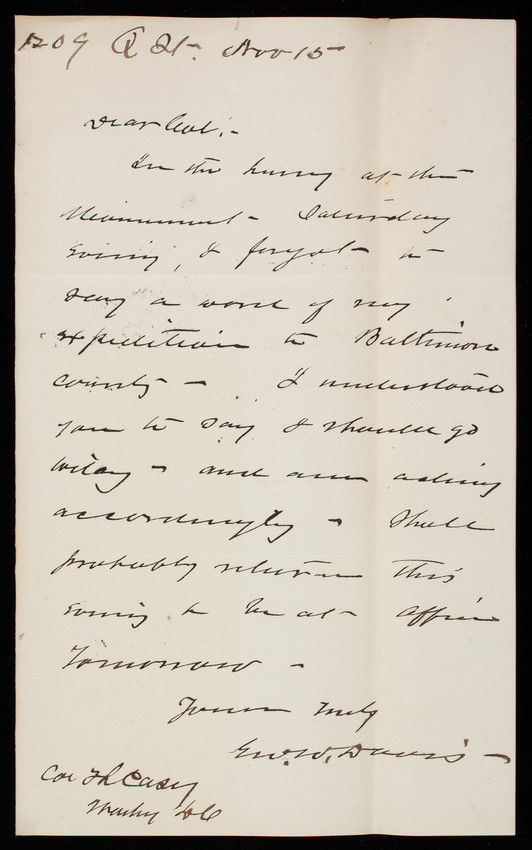 1209 Q St. Nov 15
Dear Col:-
In the hurry at the
Monument - Saturday
evening, I forgot to
say a word of my
expedition to Baltimore
county - I understood
you to say I should go
today - and am acting
accordingly - Shall
probably return this
evening to be at office
tomorrow -
Yours truly
Geo. W. Davis -
Col T L Casey
Washn DC